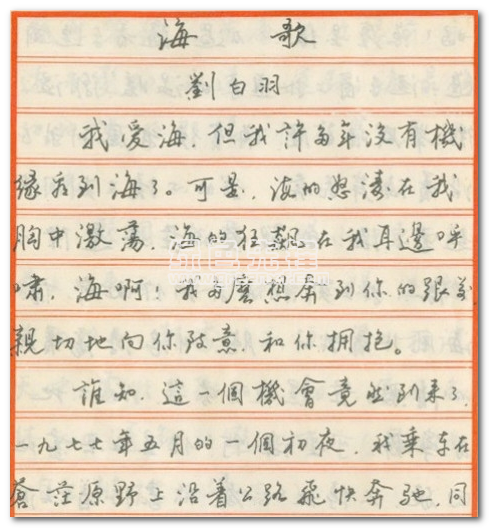 海 歌
劉白羽
我爱海，但我許多年没有機
缘看到海了。可是，海的怒濤在我
胸中激荡，海的狂飙在我耳邊呼
啸，海啊！我多麽想奔到你的跟前
親切地向你致意，和你拥抱。
誰知，這一個機會竟然到来了，
一九七七年五月的一個初夜，我乘车在
蒼茫原野上沿着公路飛快奔驰，同